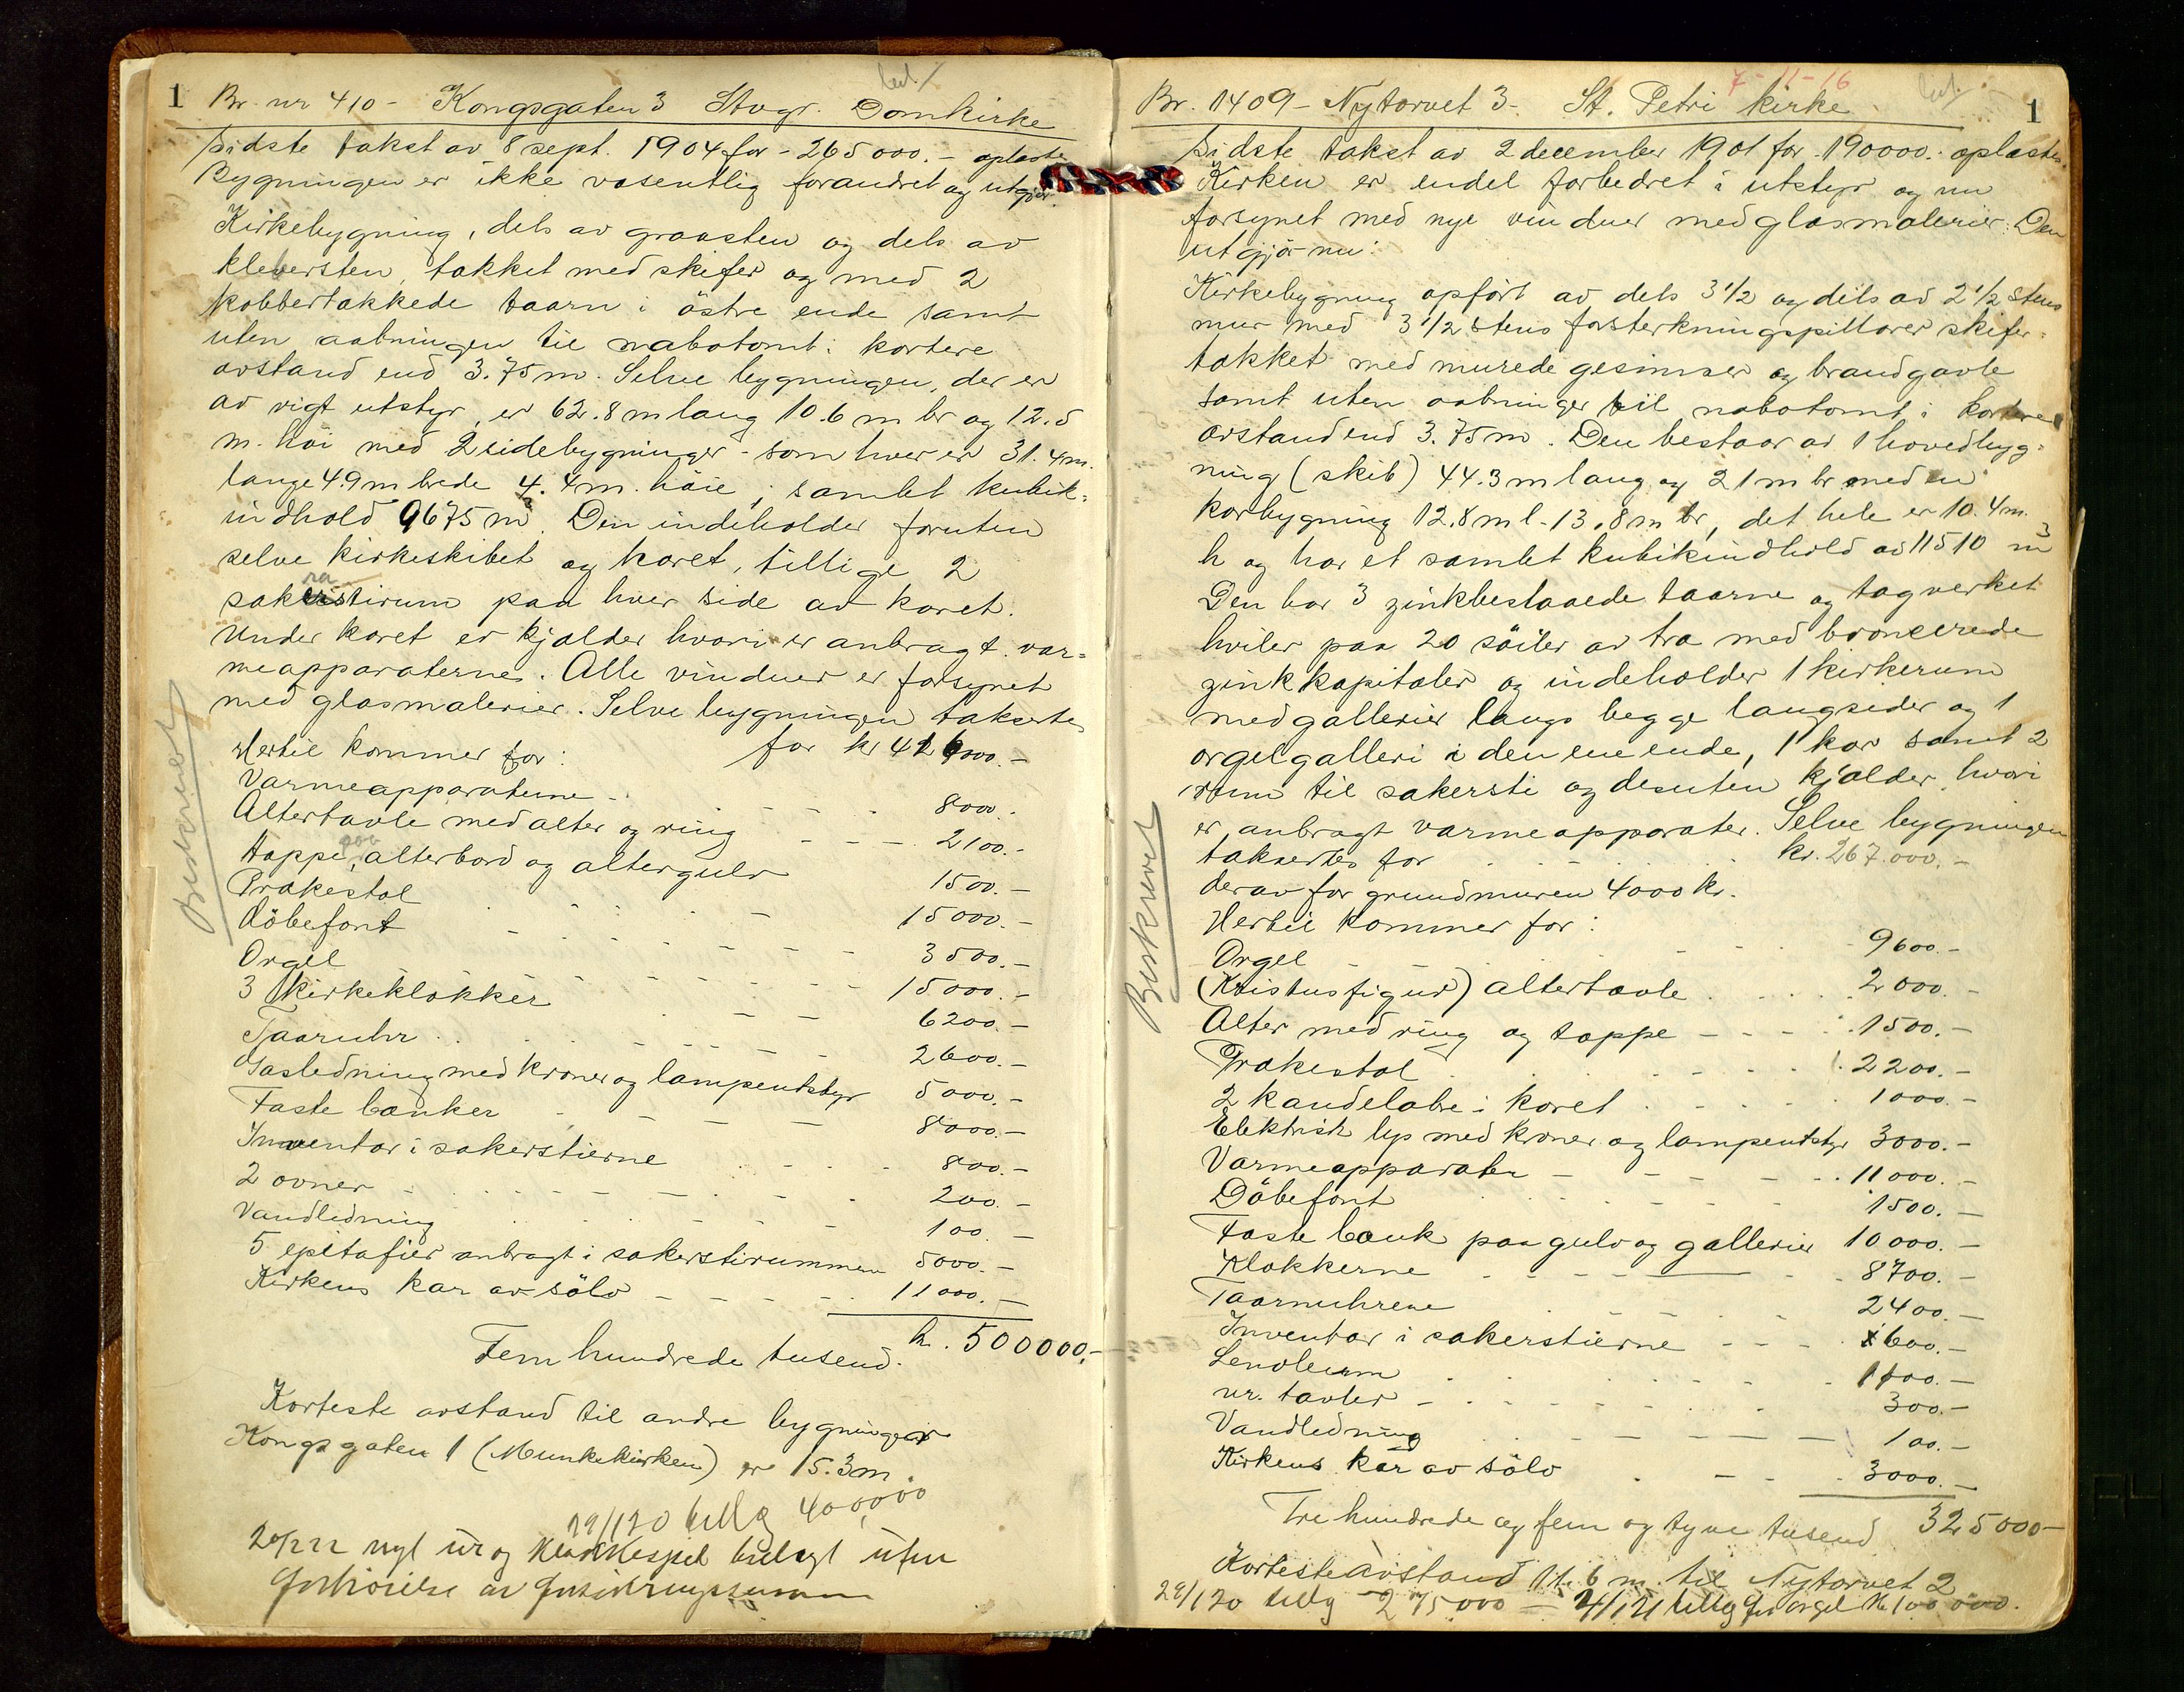 1 Br. nr 410 - Kongsgaten 3 Stvgr. Domkirke
Sidste takst av 8 sept. 1904 for - 265000.- oplæstes
Bygningen er ikke væsentlig forandret og utgjør:
Kirkebygning, dels av graasten og dels av
klebersten, tækket med skifer og med 2
kobbertækkede taarn i østre ende samt
uten aabninger til nabotomt i kortere
avstand end 3.75 m. Selve bygningen, der er
av rigt utstyr, er 62.8 m lang 10.6 m br og 12.5
m. høi med 2 sidebygninger - som hver er 31.4 m.
lange 4.9 m brede 4.4 m. høie; samlet kubik=
indhold 9675 m³. Den indeholder foruten
selve kirkeskibet og koret, tillige 2
sakristirum paa hver side av koret.
Under koret er kjælder hvori er anbragt var=
meapparaterne. Alle vinduer er forsynet
med glasmalerier. Selve bygningen takseres
for kr 416000.-
Hertil kommer for:
Varmeapparaterne - 8000.-
Altertavle med alter og ring 2100.-
Tæppe, alterbord og altergulv 1500.-
Prækestol 15000.-
Døbefont 3500.-
Orgel 15000.-
3 kirkeklokker 6200.-
Taarnuhr 2600.-
Gasledning med kroner og lampeutstyr 5000.-
Faste bænker 8000.-
Inventar i sakerstierne 800.-
2 ovner 200.-
Vandledning 100.-
5 epitafier anbragt i sakerstirummene 5000.-
Kirkens kar av sølv 11000.-
kr. 500000.-
Fem hundrede tusend.
Korteste avstand til andre bygninger
Kongsgaten 1 (Munkekirken) er 15.3 m.
29/1 20 tillg 400,000
nyt ur og Klokkespil uten
Forhöielse av Forsikringssummen
Beskrevet
1
7-11-16
Br. 1409 - Nytorvet 3 - St. Petri kirke
Sidste takst av 2 december 1901 for 190000.- oplæstes.
Kirken er endel forbedret i utstyr og nu
forsynet med nye vinduer med glasmalerier. Den
utgjør nu:
Kirkebygning opført av dels 3½ og dels av 2½ stens
mur med 3½ stens forsterkningspillarer skifer=
tækket med murede gesimser og brandgavle
samt uten aabninger til nabotomt i kortere
avstand end 3.75 m. Den bestaar av 1 hovedbyg=
ning (skib) 44.3 m lang og 21 m br med en
korbygning 12.8 m l - 13.8 m br, det hele er 10.4 m.
h og har et samlet kubikindhold av 11510 m³
Den har 3 zinkbeslaaede taarne og tagverket
hviler paa 20 søiler av træ med broncerede
zinkkapitæler og indeholder 1 kirkerum
med gallerier langs begge langsider og 1
orgelgalleri i den ene ende, 1 kor samt 2
rum til sakersti og desuten kjælder, hvori
er anbragt varmeapparater. Selve bygningen
takseres for kr. 267.000.-
derav for grundmuren 4000 kr.
Hertil kommer for:
Orgel 9600.-
(Kristusfigur) altertavle 2000.-
Alter med ring og tæppe 1500.-
Prækestol 2200.-
2 kandelabre i koret 1000.-
Elektrisk lys med kroner og lampeutstyr 3000.-
Varmeapparater 11000.-
Døbefont 1500.-
Faste bænk paa gulv og gallerier 10000.-
Klokkerne 8700.-
Taarnuhrene 2400.-
Inventar i sakerstierne 600.-
Lenoleum 1100.-
nr. tavler 300.-
Vandledning 100.-
Kirkens kar av sølv 3000.-
Tre hundrede og fem og tyve tusend 325000-
Korteste avstand 11.6 m. til Nytorvet 2
29/1 20 tillg 275.000 - tillg for orgel Kr 100 000.
Beskrevet